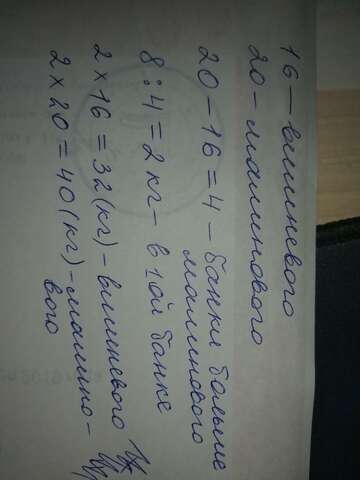 16 – вишневого
20 – малинового
20 – 16 = 4 – банки больше
малинового
8 : 4 = 2 кг – в 1 ой банке
2 × 16 = 32 (кг) – вишневого
2 × 20 = 40 (кг) – малино-
вого